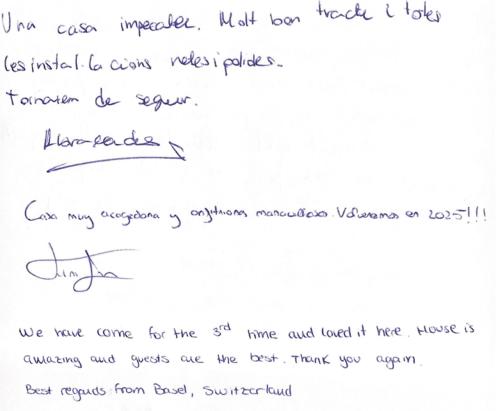 Una casa impecable. Molt bon tracte i totes
les instal·lacions netes i polides.
Tornarem de segur.
Casa muy acogedora y anfitriones maravillosos. Volveremos en 2025!!!
We have come for the 3rd time and loved it here. House is
amazing and guests are the best. Thank you again.
Best regards from Basel, Switzerland